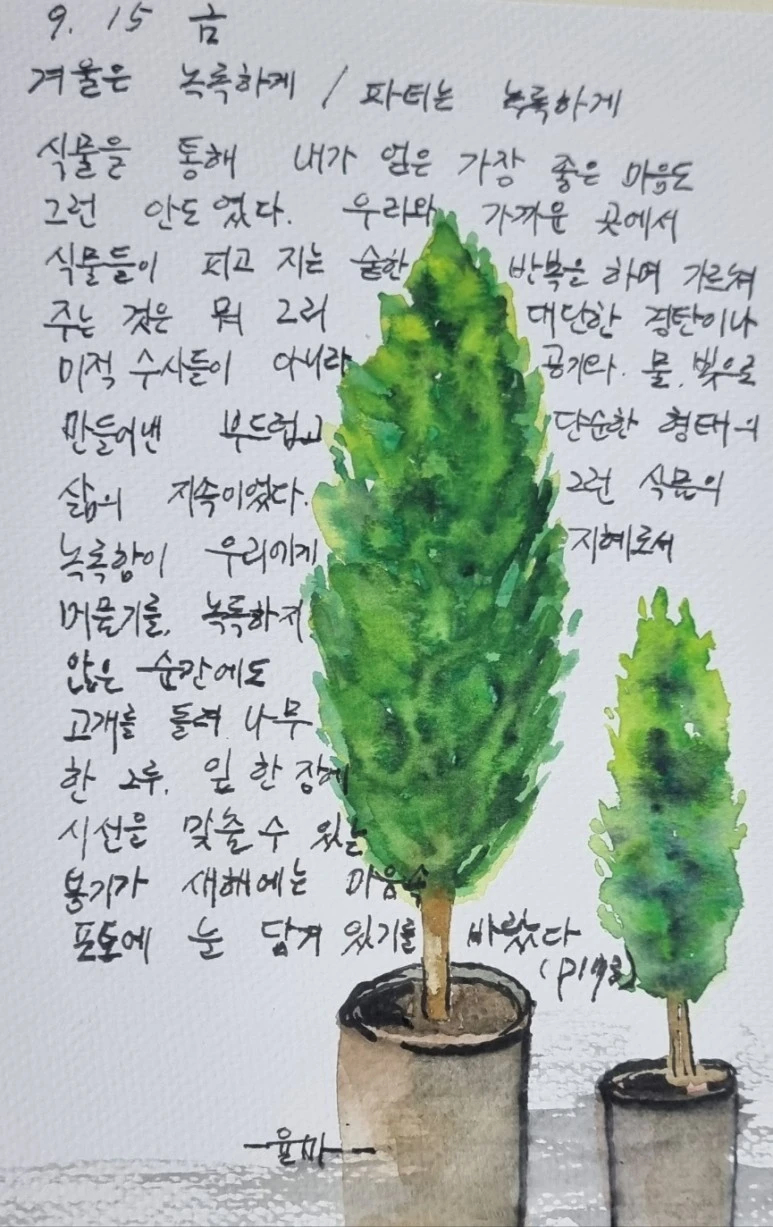 9. 15 금
겨울은 녹록하게 / 파티는 녹록하게
식물을 통해 내가 얻은 가장 좋은 마음도
그런 안도였다. 우리와 가까운 곳에서
식물들이 피고 지는 숱한 반복을 하며 가르쳐
주는 것은 뭐 그리 대단한 경탄이나
미적 수사들이 아니라 공기와. 물. 빛으로
만들어낸 부드럽고 단순한 형태의
삶의 지속이었다. 그런 식물의
녹록함이 우리에게 지혜로서
머물기를. 녹록하지
않은 순간에도
고개를 돌려 나무
한 그루. 잎 한 장에
시선을 맞출 수 있는
용기가 새해에는 마음속
포토에 눈 담겨 있기를 바랐다
윤마